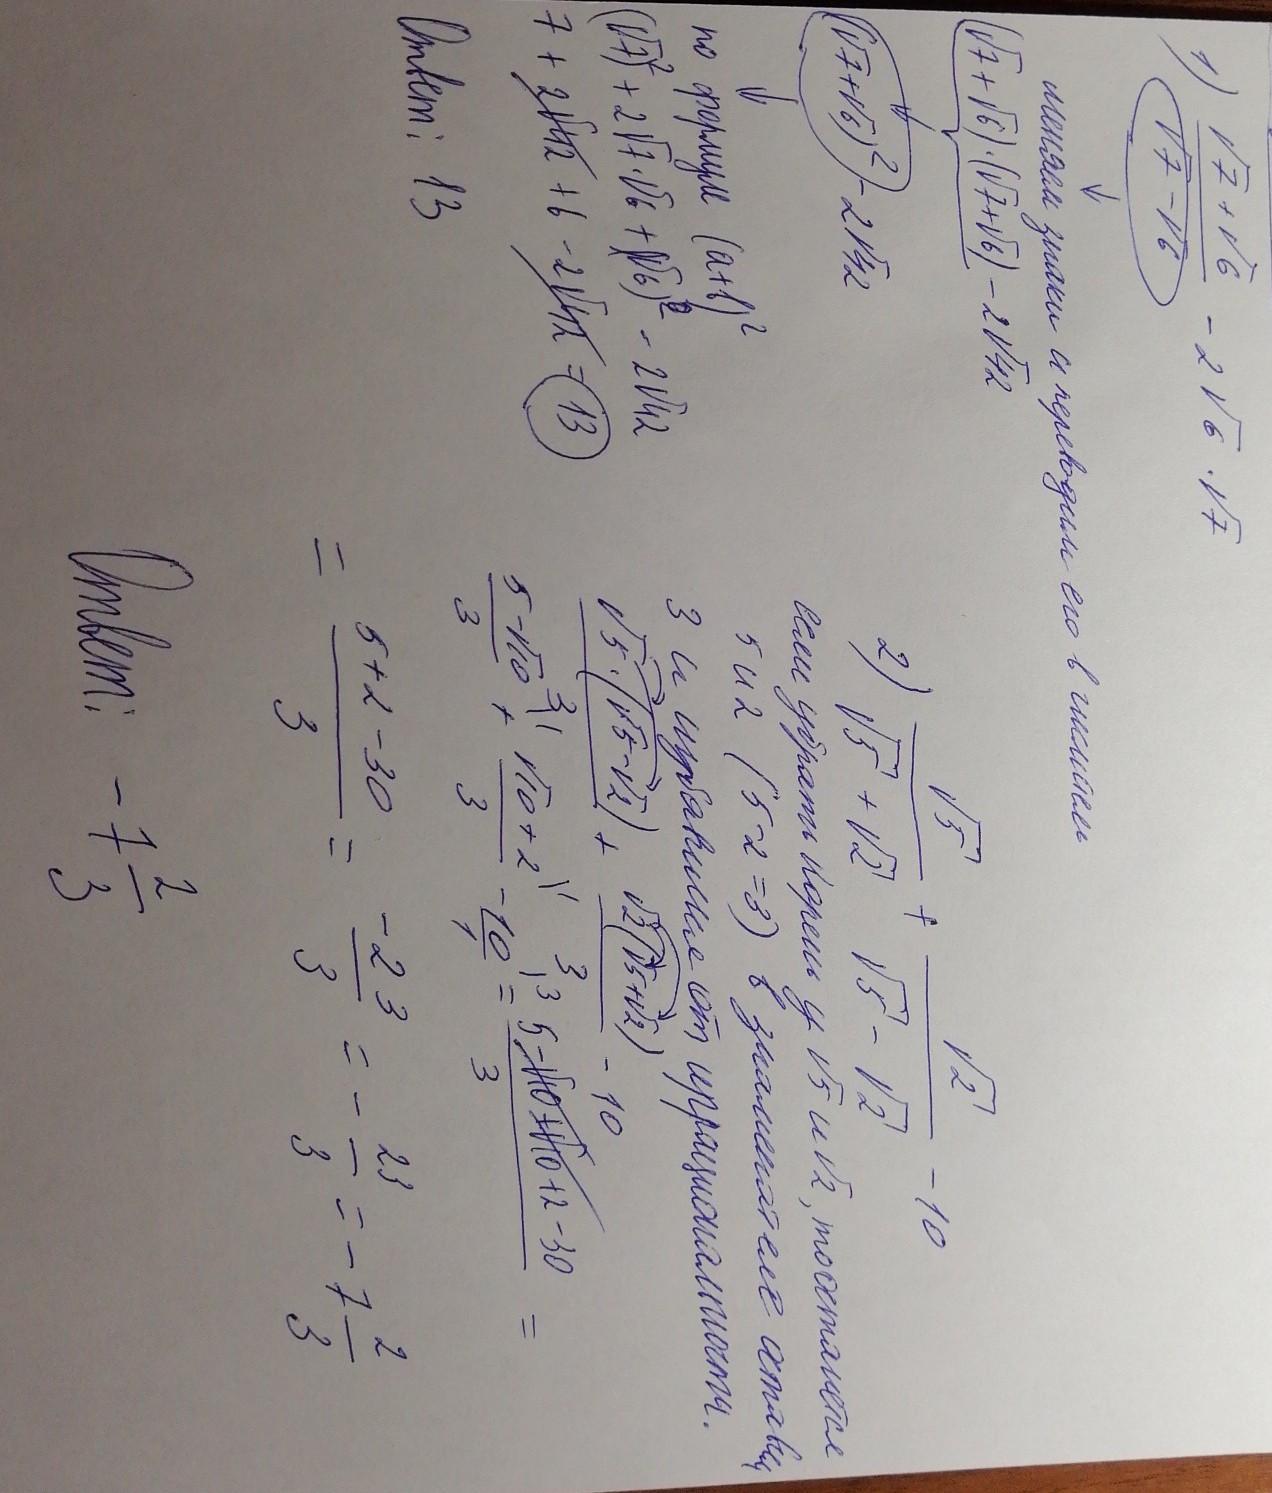 1) (√7+√6)/(√7-√6) - 2√6·√7
меняем знаки и переводим его в числитель
(√7+√6)·(√7+√6) - 2√42
(√7+√6)² - 2√42
по формуле (a+b)²
(√7)² + 2√7·√6 + (√6)² - 2√42
7 + 2√42 + 6 - 2√42 = 13
Ответ: 13
2) √5/(√5+√2) + √2/(√5-√2) - 10
если убрать корень у √5 и √2, то останется
5 и 2 (5-2=3) в знаменателе
3 и избавимся от иррациональности.
√5·(√5-√2)/3 + √2(√5+√2)/3 - 10
(5-√10)/3 + (√10+2)/3 - 10/1 = (5-√10+√10+2-30)/3 =
= (5+2-30)/3 = -23/3 = -23/3 = -7 2/3
Ответ: -7 2/3